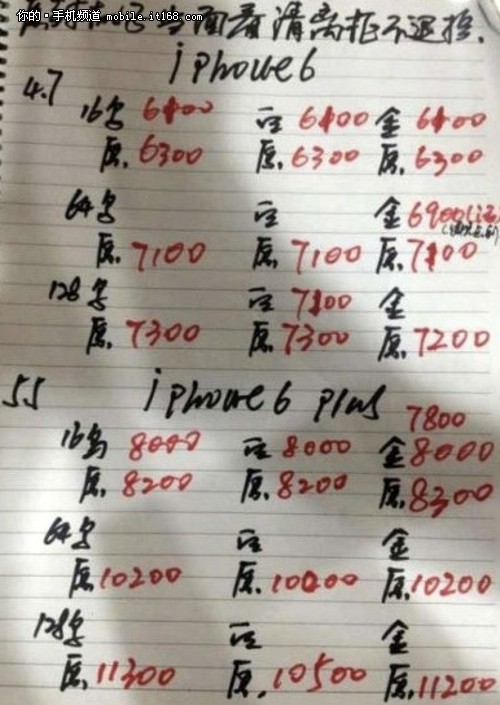 你的·手机频道 mobile.it168.com
当面看清离柜不退换.
iphone6
4.7
16 6400 白 6400 金 6400
原.6300 原.6300 原.6300
64 白 金 6900
原.7100 原.7100 原.7100
128 白 7100 金
原.7300 原.7300 原.7200
5.5 iphone6 plus 7800
16 8000 白 8000 金 8000
原.8200 原.8200 原.8300
64 白 金
原.10200 原.10200 原.10200
128 白 金
原.11300 原.10500 原.11200